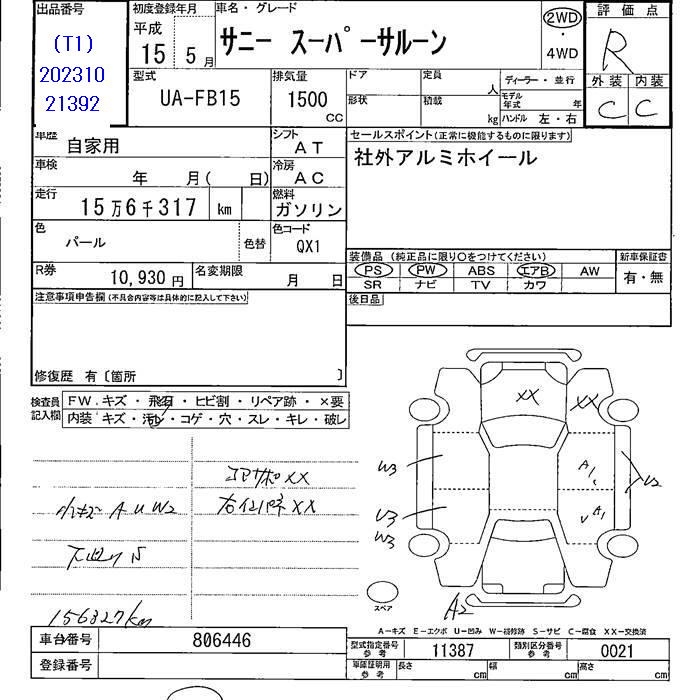 出品番号
(T1)
202310
21392
初度登録年月
平成
15 5 月
車名・グレード
サニー スーパーサルーン
2WD
・
4WD
評価点
R
外装 内装
C C
型式
UA-FB15
排気量
1500
CC
ドア
形状
定員
人
積載
kg
ディーラー・並行
モデル年式 年
ハンドル 左・右
車歴
自家用
シフト
AT
車検
年 月( 日)
冷房
AC
走行
15万6千317 km
燃料
ガソリン
色
パール
色替
色コード
QX1
R券
10,930円
名変期限
月 日
セールスポイント(正常に機能するものに限ります)
社外アルミホイール
装備品 (純正品に限り○をつけてください)
PS PW ABS エアB AW
SR ナビ TV カワ
新車保証書
有・無
後日品
注意事項申告欄(不具合内容等は具体的に記入して下さい)
修復歴 有〔箇所 〕
検査員
記入欄
FW.キズ・飛石・ヒビ割・リペア跡・×要
内装 キズ・汚レ・コゲ・穴・スレ・キレ・破レ
コアサポXX
小キズ A U W2
右インパネXX
下廻りS
156327km
XX
XX
W3
A1
W2
U3
A1
W3
A2
スペア
A-キズ E-エクボ U-凹み W-補修跡 S-サビ C-腐食 XX-交換済
車台番号
806446
登録番号
型式指定番号
参考
11387
類別区分番号
参考
0021
車庫証明用
参考
長さ cm
幅 cm
高さ cm